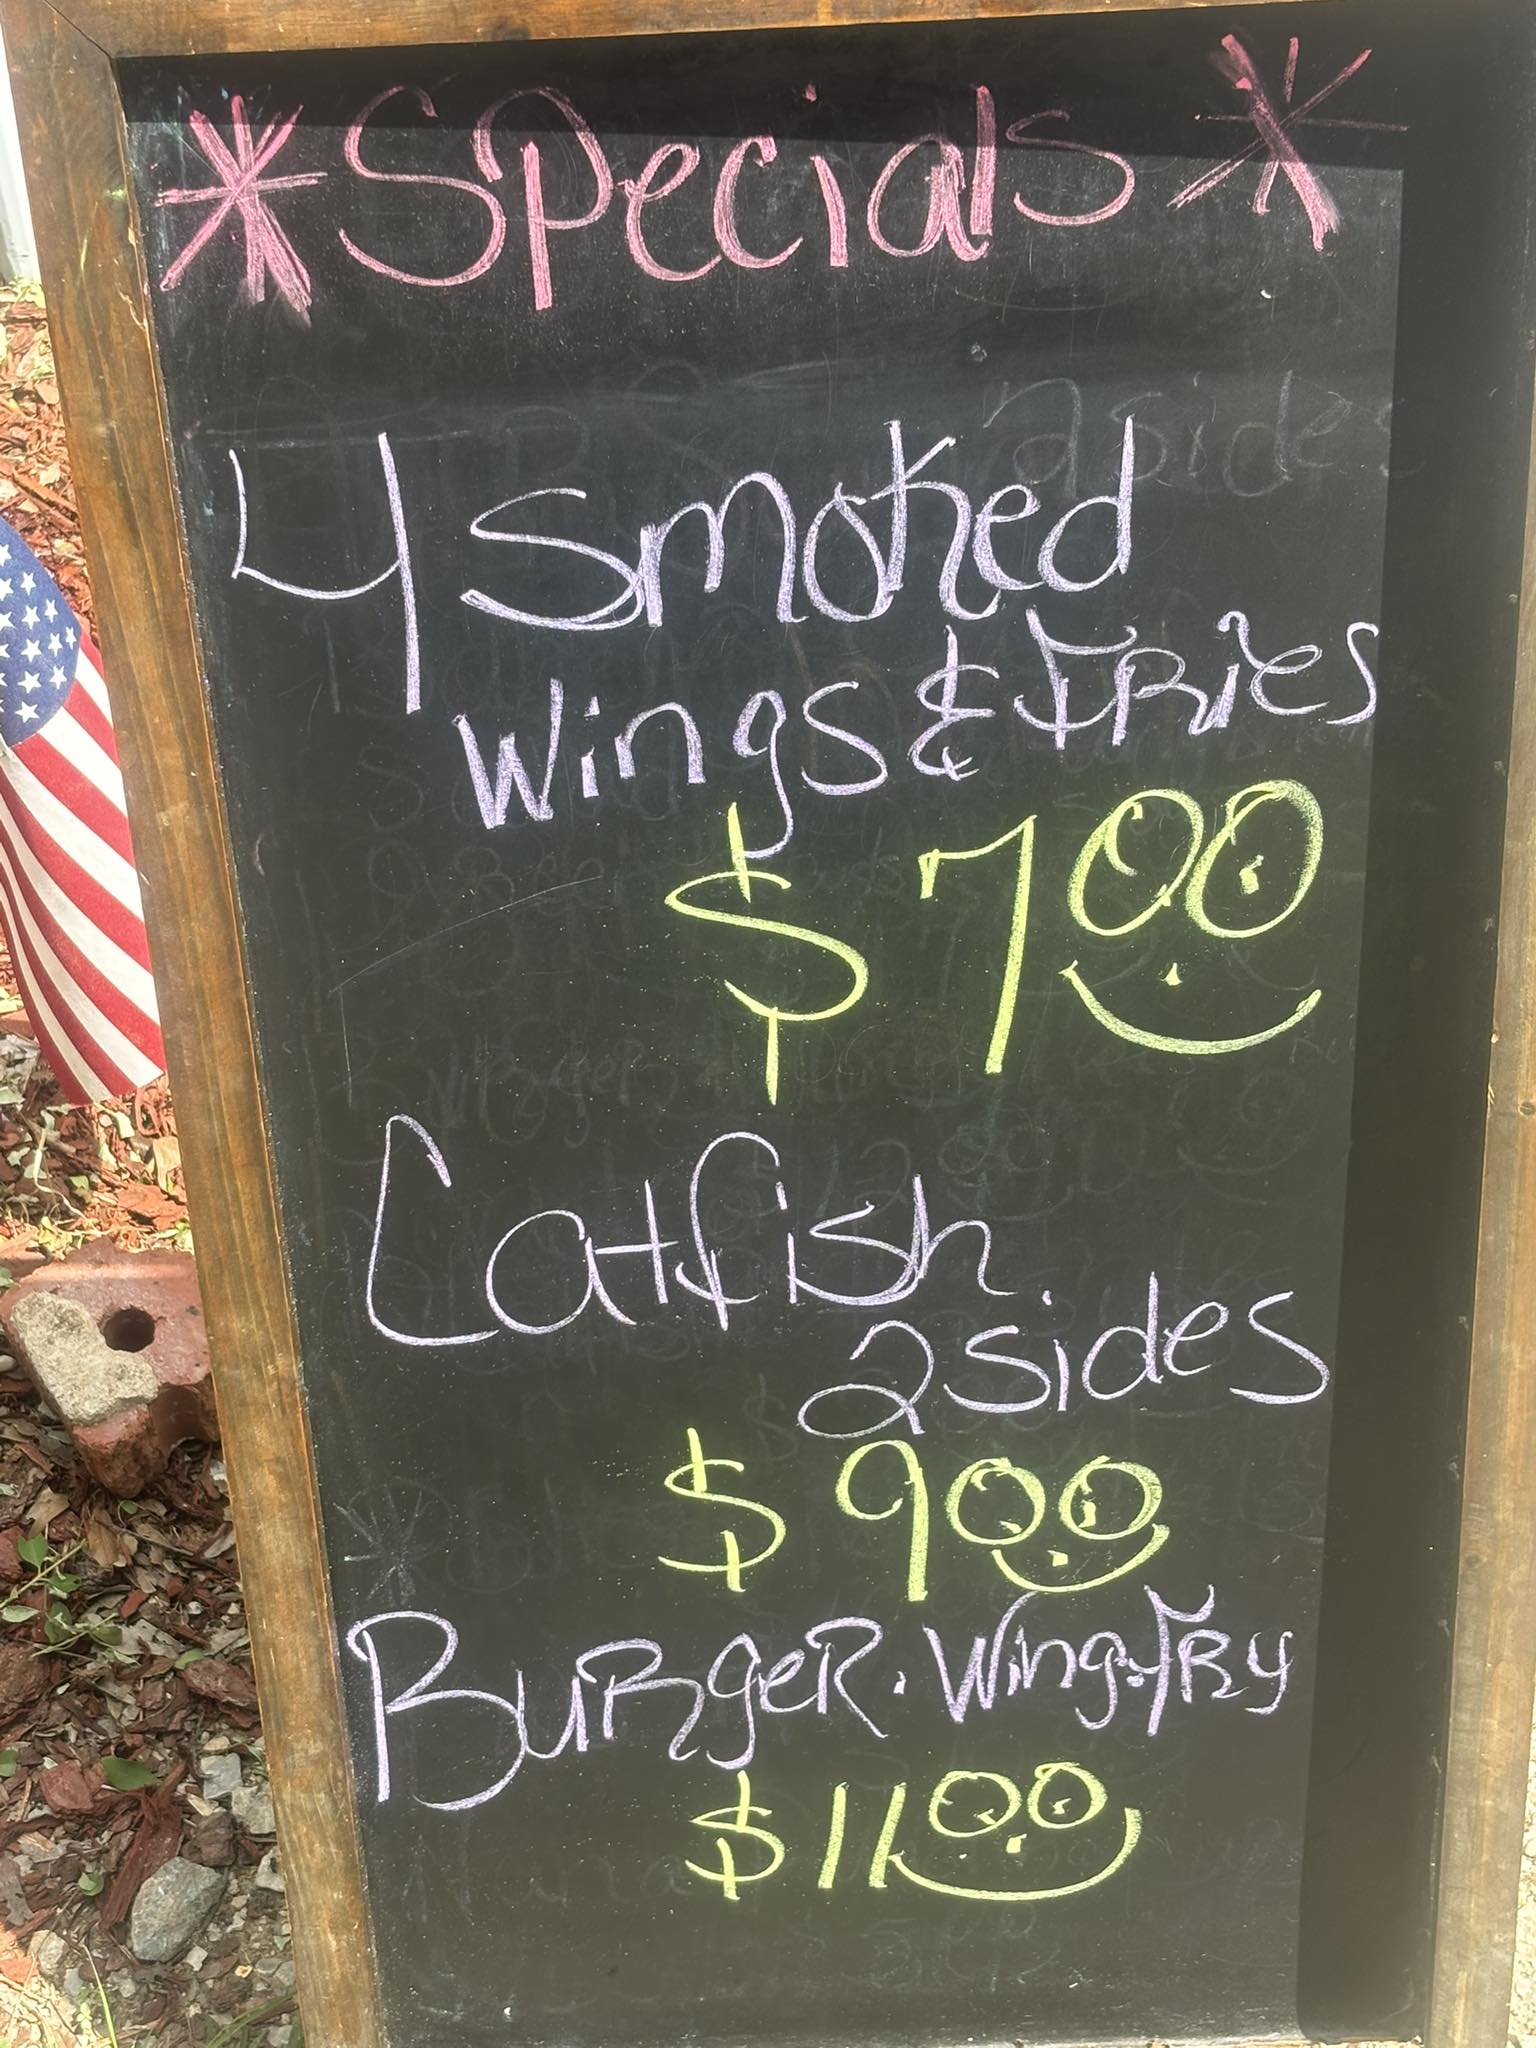 *Specials*
4 Smoked
Wings & FRies
$7.00
Catfish
2 sides
$9.00
BuRgeR. Wing. FRy
$11.00